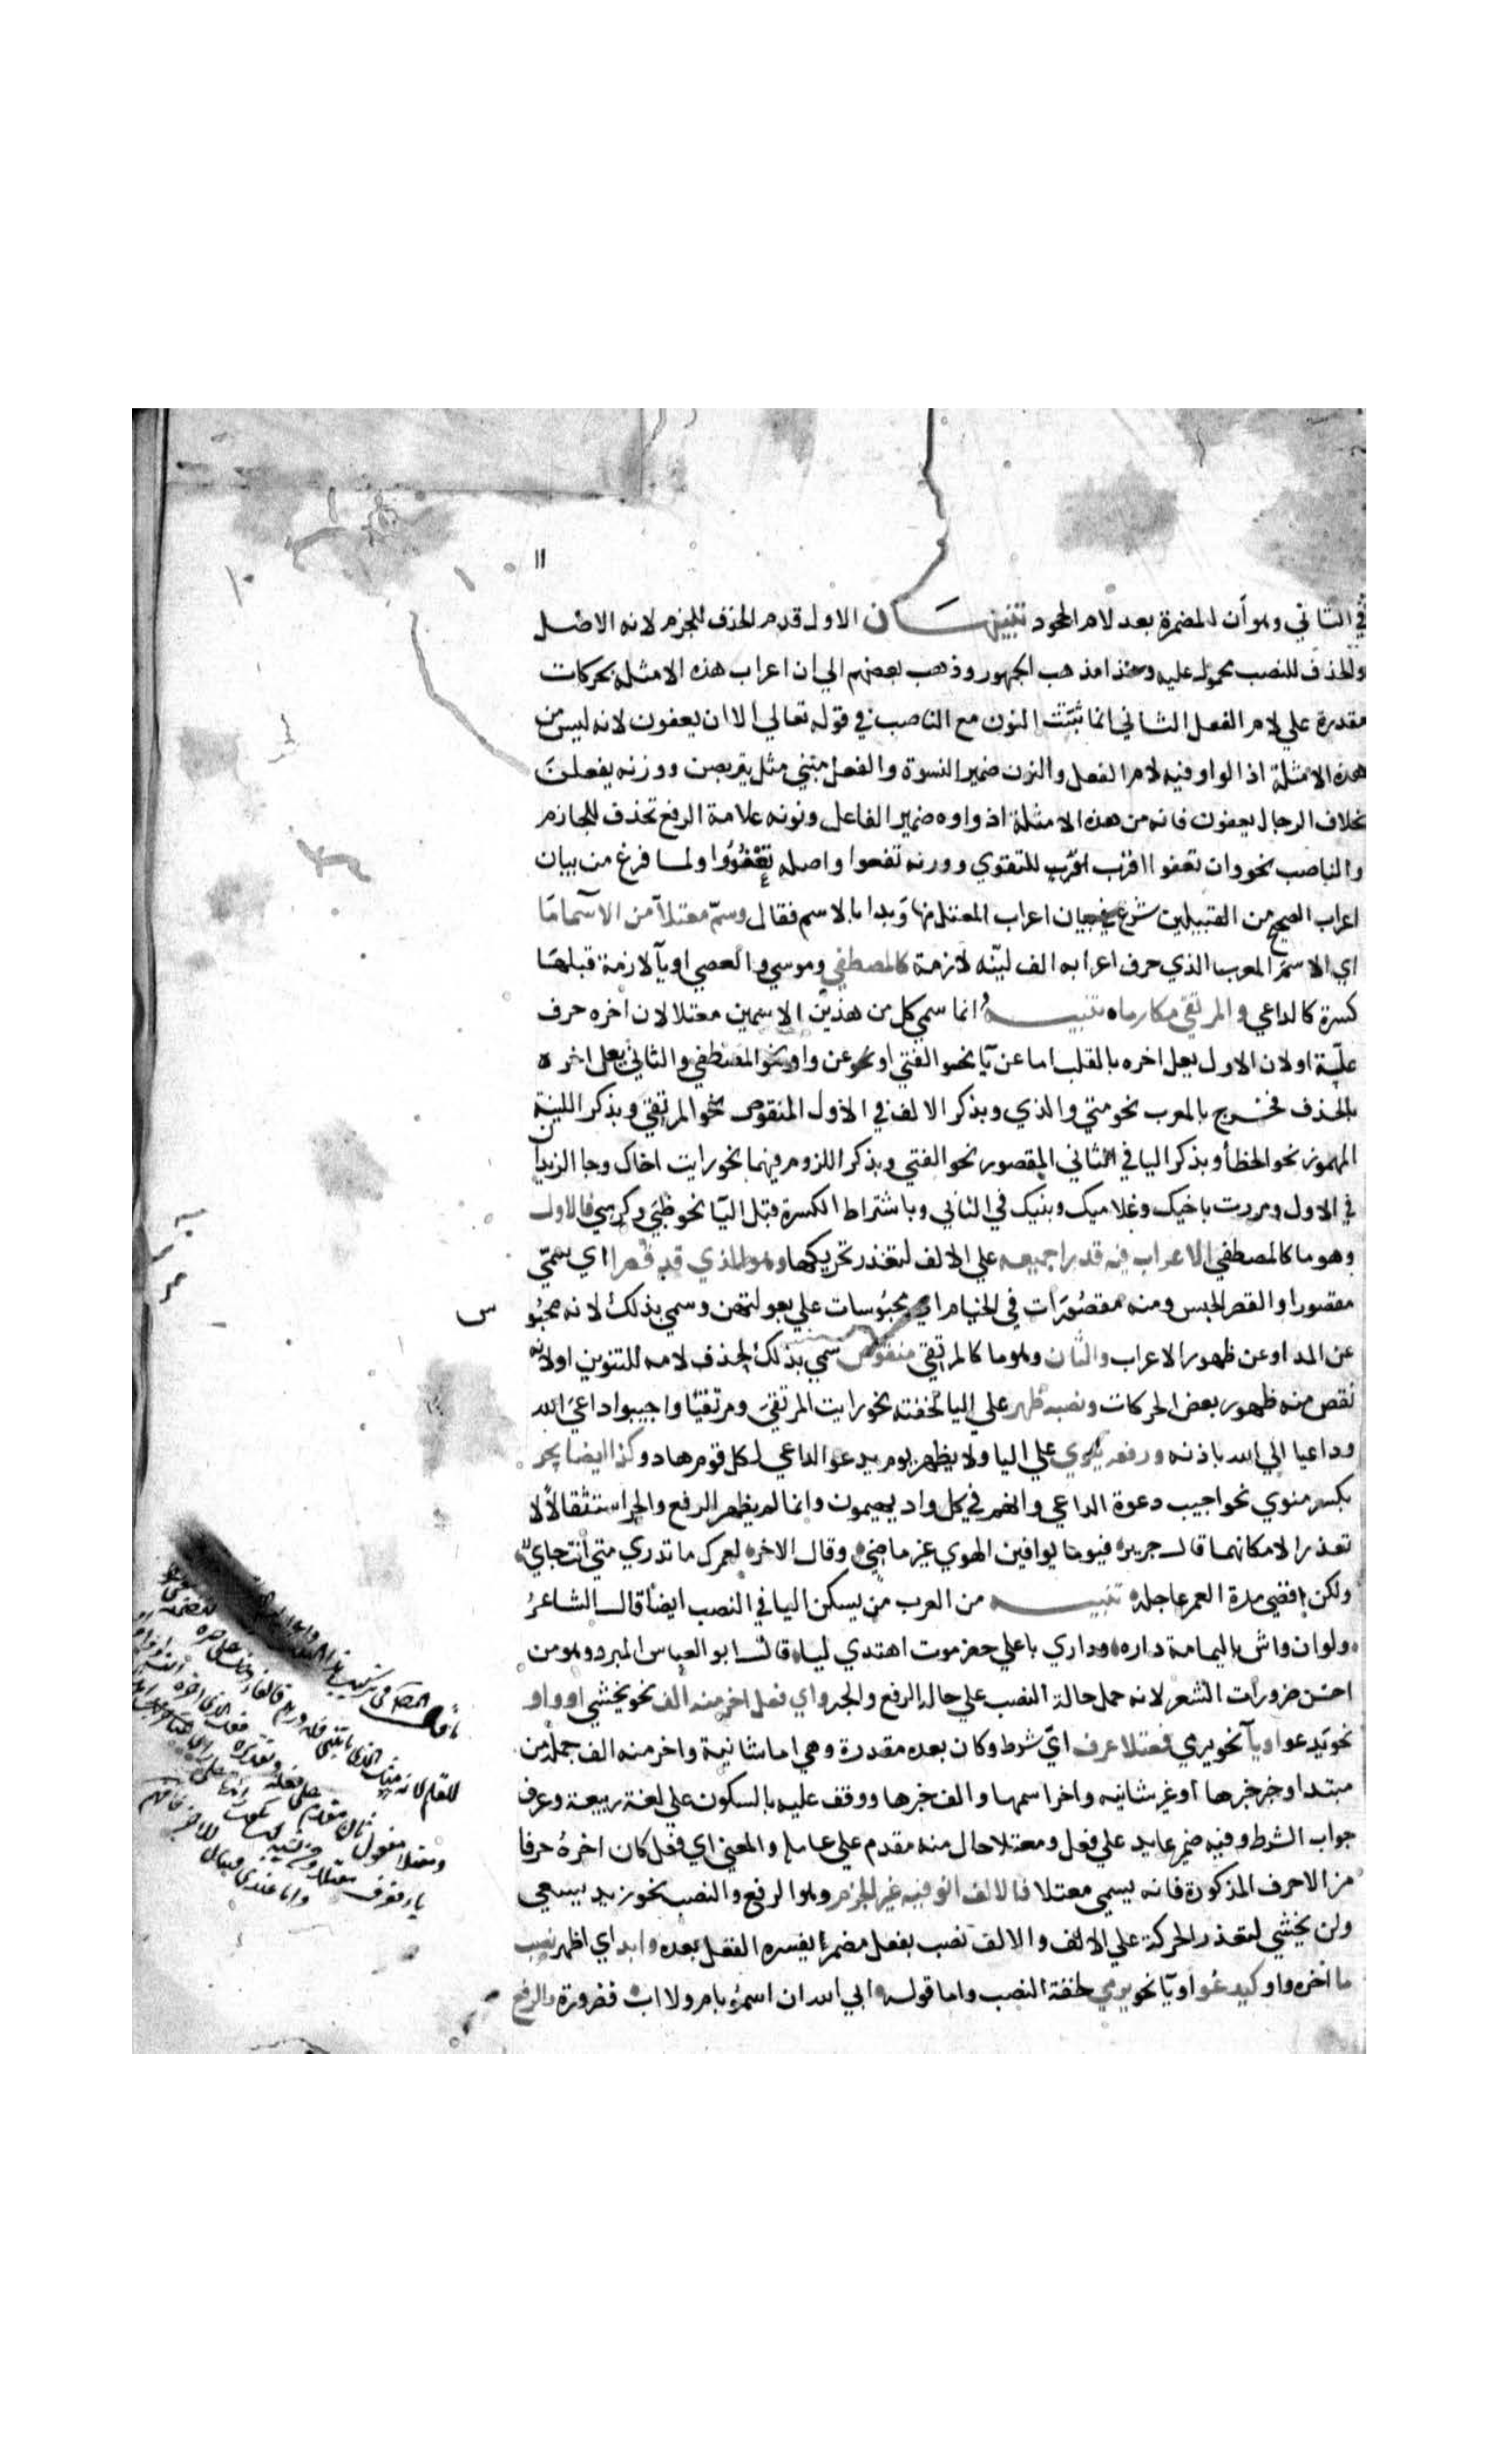 ١١
في الثاني وهو أن المضمرة بعد لام الجحود تنبيهـــان الاول قدم الحذف للجزم لانه الاصل
والحذف للنصب محمول عليه وهذا مذهب الجمهور وذهب بعضهم الي ان اعراب هذه الامثلة بحركات
مقدرة علي لام الفعل الثاني انما ثبتت النون مع الناصب في قوله تعالي الا ان يعفون لانه ليس من
هذه الامثلة اذ الواو فيه لام الفعل والنون ضمير النسوة والفعل مبني مثل يتربصن ووزنه يفعلن
بخلاف الرجال يعفون فانه من هذه الامثلة اذ واوه ضمير الفاعل ونونه علامة الرفع تحذف للجازم
والناصب نحو وان تعفوا اقرب للتقوي ووزنه تفعوا واصله تعفووا ولما فرغ من بيان
اعراب الصحيح من القبيلين شرع في بيان اعراب المعتل منها وبدا بالاسم فقال وسم معتلا من الاسما ما
اي الاسم المعرب الذي حرف اعرابه الف لينه لازمة كالمصطفي وموسي والعصي او يا لازمة قبلها
كسرة كالداعي والمرتقي مكارما ه تنبيـــه انما سمي كل من هذين الاسمين معتلا لان اخره حرف
علة او لان الاول يعل اخره بالقلب اما عن يا نحو الفتي او عن واو نحو المصطفي والثاني يعل اخره
بالحذف فخرج بالمعرب نحو متي والذي وبذكر الالف في الاول المنقوص نحو المرتقي وبذكر اللينة
المهموز نحو الخطأ وبذكر اليا في الثاني المقصور نحو الفتي وبذكر اللزوم فيهما نحو رايت اخاك وجا الزيدان
في الاول ومررت باخيك وغلاميك وبنيك في الثاني وباشتراط الكسرة قبل اليا نحو ظبي وكرسي فالاول
وهو ما كالمصطفي الاعراب فيه قدرا جميعه علي الالف لتعذر تحريكها وهو الذي قد قصرا اي سمي
مقصورا والقصر الحبس ومنه مقصورات في الخيام اي محبوسات علي بعولتهن وسمي بذلك لانه محبو
س
عن المد او عن ظهور الاعراب والثان وهو ما كالمرتقي منقوص سمي بذلك لحذف لامه للتنوين او لانه
نقص منه ظهور بعض الحركات ونصبه ظهر علي اليا لخفته نحو رايت المرتقي ومرتقيا واجيبوا داعي الله
وداعيا الي الله باذنه ورفعه ينوي علي اليا ولا يظهر يوم يدعو الداعي لكل قوم هاد وكذا ايضا يجر
بكسر منوي نحو اجيب دعوة الداعي وانهم في كل واد يهيمون وانما لم يظهر الرفع والجر استثقالا لا
تعذرا لامكانهما قال جرير ه فيوما يوافين الهوي غير ماضي ه وقال الاخر ه لعمرك ما تدري متي انت جاي ه
ولكن اقضي مدة العمر عاجله ه تنبيـــه من العرب من يسكن اليا في النصب ايضا قال الشاعر
ه ولو ان واش باليمامة داره ه وداري باعلي حضرموت اهتدي ليا ه قال ابو العباس المبرد وهو من
احسن ضرورات الشعر لانه حمل حالة النصب علي حالة الرفع والجر واي فعل اخر منه الف نحو يخشي او واو
نحو يدعوا او يا نحو يرمي فمعتلا عرف اي شرط وكان بعده مقدرة وهي اما شانية واخر منه الف جملة من
مبتدا وخبر خبرها او غير شانيه واخر اسمها والف خبرها ووقف عليه بالسكون علي لغة ربيعة وعرف
جواب الشرط وفيه ضمير عايد علي فعل ومعتلا حال منه مقدم علي عامله والمعني اي فعل كان اخره حرفا
من الاحرف المذكورة فانه يسمي معتلا فالالف انو فيه غير الجزم وهو الرفع والنصب نحو زيد يسعي
ولن يخشي لتعذر الحركة علي الالف والالف نصب بفعل مضمر يفسره الفعل بعده وابد اي اظهر نصب
ما اخره واو كيدعوا او يا نحو يرمي لخفة النصب واما قوله ه ابي الله ان اسمو بام ولا اب ه فضرورة والرفع